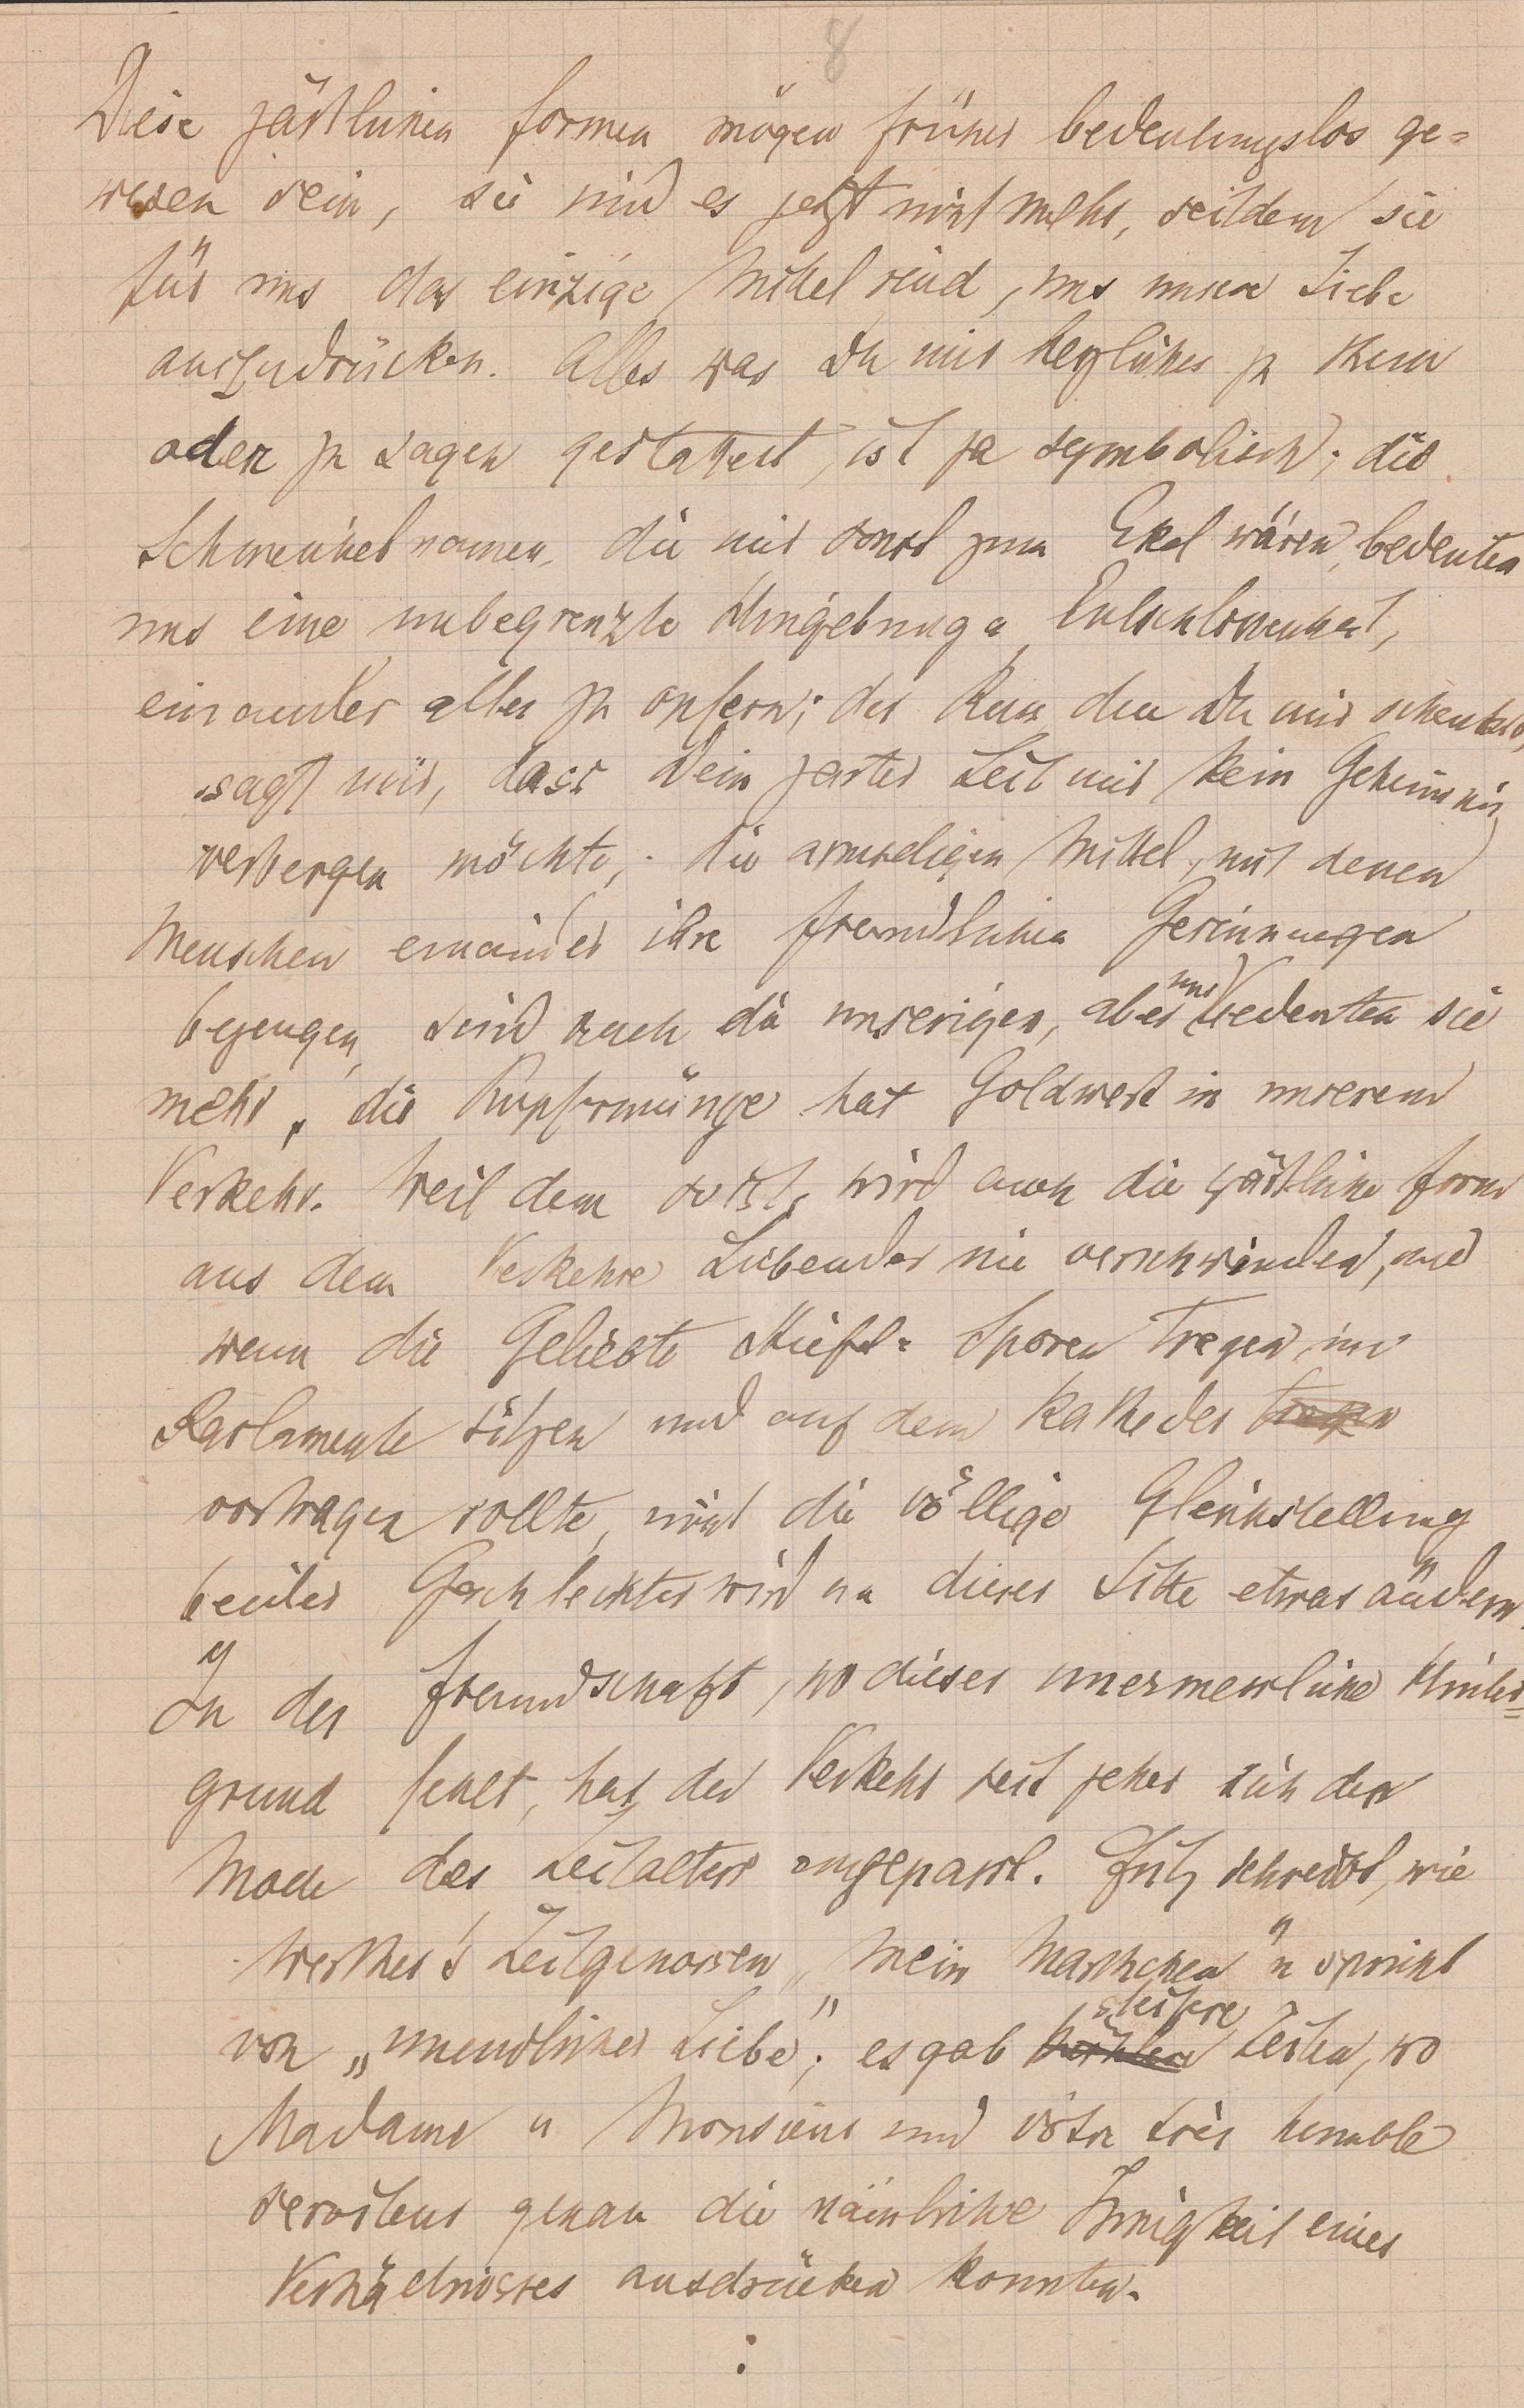 8
Diese zärtlichen Formen mögen früher bedeutungslos ge=
wesen sein, sie sind es jetzt nicht mehr, seitdem sie
für uns das einzige Mittel sind, uns unsere Liebe
auszudrücken. Alles was Du mir herzliches zu thun
oder zu sagen gestattest, ist ja symbolisch; die
Schmeichelnamen, die mir sonst zum Ekel wären, bedeuten
uns eine unbegrenzte Hingebung u Entschlossenheit,
einander alles zu opfern; der Kuss den Du mir schenkst,
sagt mir, dass Dein zarter Leib mir kein Geheimnis
verbergen möchte; die armseligen Mittel, mit denen
Menschen einander ihre freundlichen Gesinnungen
bezeugen, sind auch die unserigen, aber uns bedeuten sie
mehr, die Kupfermünze hat Goldwert in unserem
Verkehr. Weil dem so ist, wird auch die zärtliche Form
aus dem Verkehre Liebender nie verschwinden, und
wenn die Geliebte Stiefel= Sporen tragen, im
Parlamente sitzen und auf dem Katheder tragen
vortragen sollte, nicht die völlige Gleichstellung
beider Geschlechter wird an dieser Sitte etwas ändern.
In der Freundschaft, wo dieser unermessliche Hinter=
grund fehlt, hat der Verkehr seit jeher sich der
Mode des Zeitalters angepasst. Fritz schreibt, wie
Werther's Zeitgenossen „Mein Marthchen" u spricht
von „unendlicher Liebe"; es gab steifere Zeiten, wo
Madame u Monsieur und vôtre très humble
serviteur genau die nämliche Innigkeit eines
Verhältnisses ausdrücken konnten.